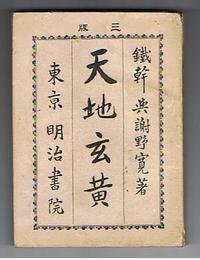 三版
鐵幹 與謝野寛著
天地玄黄
東京 明治書院